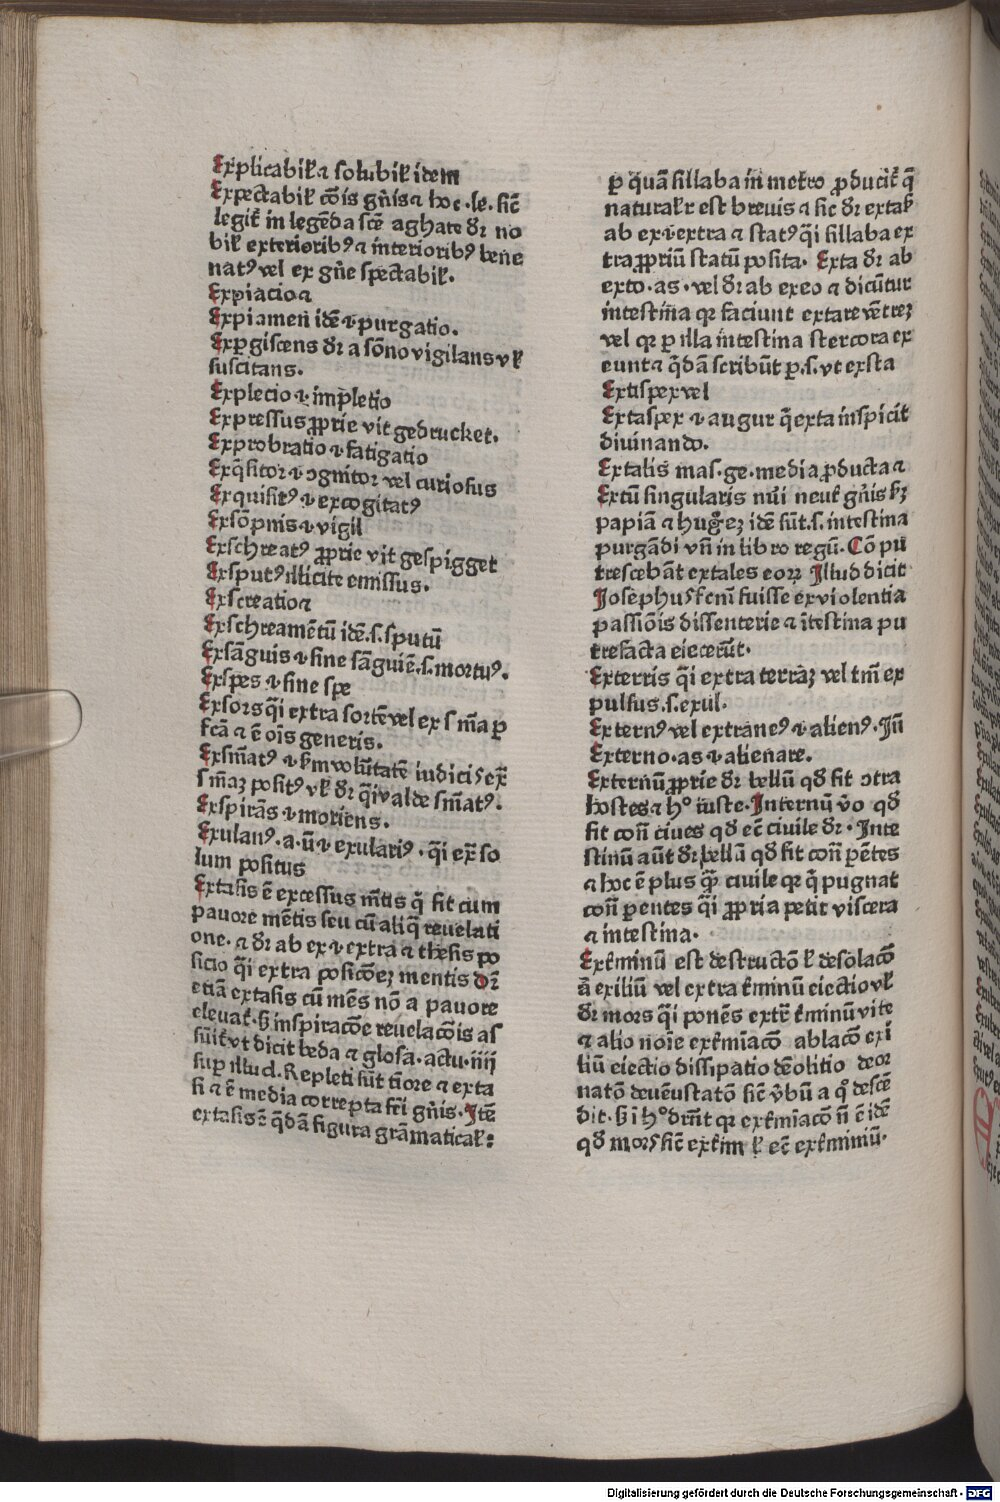 Explicabil̄ ⁊ solubil̄ idem
Expectabil̄ cōis gn̄is ⁊ hoc .le. sic̄
legit̄ in legēda scē aghate dr̄ no
bil̄ exteriorib⁹ ⁊ interiorib⁹ bene
nat⁹ vel ex gn̄e spectabil̄.
Expiacio ⁊
Expiamen idē ⁊ purgatio.
Exꝑgiscens dr̄ a sōno vigilans vl̄
suscitans.
Explecio ⁊ impletio
Expressus ꝓprie vit gedrucket.
Exprobratio ⁊ fatigatio
Exq̄sitor ⁊ ꝯgnitor vel curiosus
Exquisit⁹ ⁊ excogitat⁹
Exsōpnis ⁊ vigil
Exschreat⁹ ꝓprie vit gespigget
Exsput⁹ illicite emissus.
Exscreatio ⁊
Exschreamētū idē .s. sputū
Exsāguis ⁊ sine sāguiē .s. mortu⁹.
Exspes ⁊ sine spe
Exsors q̄i extra sortē vel ex sn̄ia ꝑ
fcā ⁊ ē oīs generis.
Exsn̄iat⁹ ⁊ km̄ volūtatē iudicis ex̄
sn̄iaꝫ posit⁹ vl̄ dr̄ q̄i valde sn̄iat⁹.
Exspirās ⁊ moriens.
Exulan⁹ .a.ū ⁊ exularis. q̄i ex̄ so
lum positus
Extasis ē excessus mn̄tis q̄ fit cum
pauore mētis seu cū aliq̄ reuelati
one. ⁊ dr̄ ab ex ⁊ extra ⁊ thesis po
sicio q̄i extra posicōeꝫ mentis Dr̄
etiā extasis cū mēs nō a pauore
eleuat̄. sꝫ inspiracōe reuelacōis as
sūit̄ vt dicit beda ⁊ glosa. actu. iiij
suꝑ illud. Repleti sūt tiore ⁊ exta
si ⁊ ē media correpta fēi gn̄is. Itē
extasis ē q̄dā figura grāmatical̄:
ꝑ q̄uā sillaba in metro ꝓducit̄ q̄
naturalr̄ est breuis ⁊ sic dr̄ extas̄
ab ex ⁊ extra ⁊ stat⁹ q̄i sillaba ex
tra ꝓpriū statū posita. Exta dr̄ ab
exto .as. vel dr̄ ab exeo ⁊ dicūtur
intestina qr̄ faciunt extare vētreꝫ
vel qr̄ ꝑ illa intestina stercora ex
eunt ⁊ q̄dā scribūt ꝑ .s. vt exsta
Extispex vel
Extaspex ⁊ augur q̄ exta inspicit
diuinando.
Extalis mas. ge. media ꝓducta ⁊
Extū singularis nūi neut̄ gn̄is kꝫ
papiā ⁊ hug̊eꝫ idē sūt .s. intestina
purgādi vn̄ in libro regū. Cō pu
trescebāt extales eoꝝ Illud dicit
Josephus fēm̄ fuisse ex violentia
passiōis dissenterie ⁊ ītestina pu
trefacta eiecerūt.
Exterris q̄i extra terrāꝫ vel tm̄ ex
pulsus .s. exul.
Extern⁹ vel extrane⁹ ⁊ alien⁹. Jn̄
Externo .as ⁊ alienare.
Externū ꝓprie dr̄ bellū qd̄ fit ꝯtra
hostes ⁊ h° iuste. Internū v̊o qd̄
fit con̄ ciues qd̄ ec̄ ciuile dr̄. Inte
stinū aūt dr̄ bellū qd̄ fit con̄ ꝑētes
⁊ hoc ē plus qꝫ ciuile qr̄ q̄ pugnat
con̄ ꝑentes q̄i ꝓpria petit viscera
⁊ intestina.
Ext̄minū est destructō l̄ desolacō
ā exiliū vel extra t̄minū eiectio vl̄
dr̄ mors q̄i ponēs extr̄ t̄minū vite
⁊ alio noīe ext̄mīacō ablacō exi
liū eiectio dissipatio dēolitio deor
natō deuēustatō sic̄ v̄bū a q° descē
dit. sꝫ i h° drn̄t qr̄ ext̄mīacō n̄ ē idē
qd̄ mors sic̄ ext̄im l̄ ec̄ ext̄miniū.
Digitalisierung gefördert durch die Deutsche Forschungsgemeinschaft - DFG